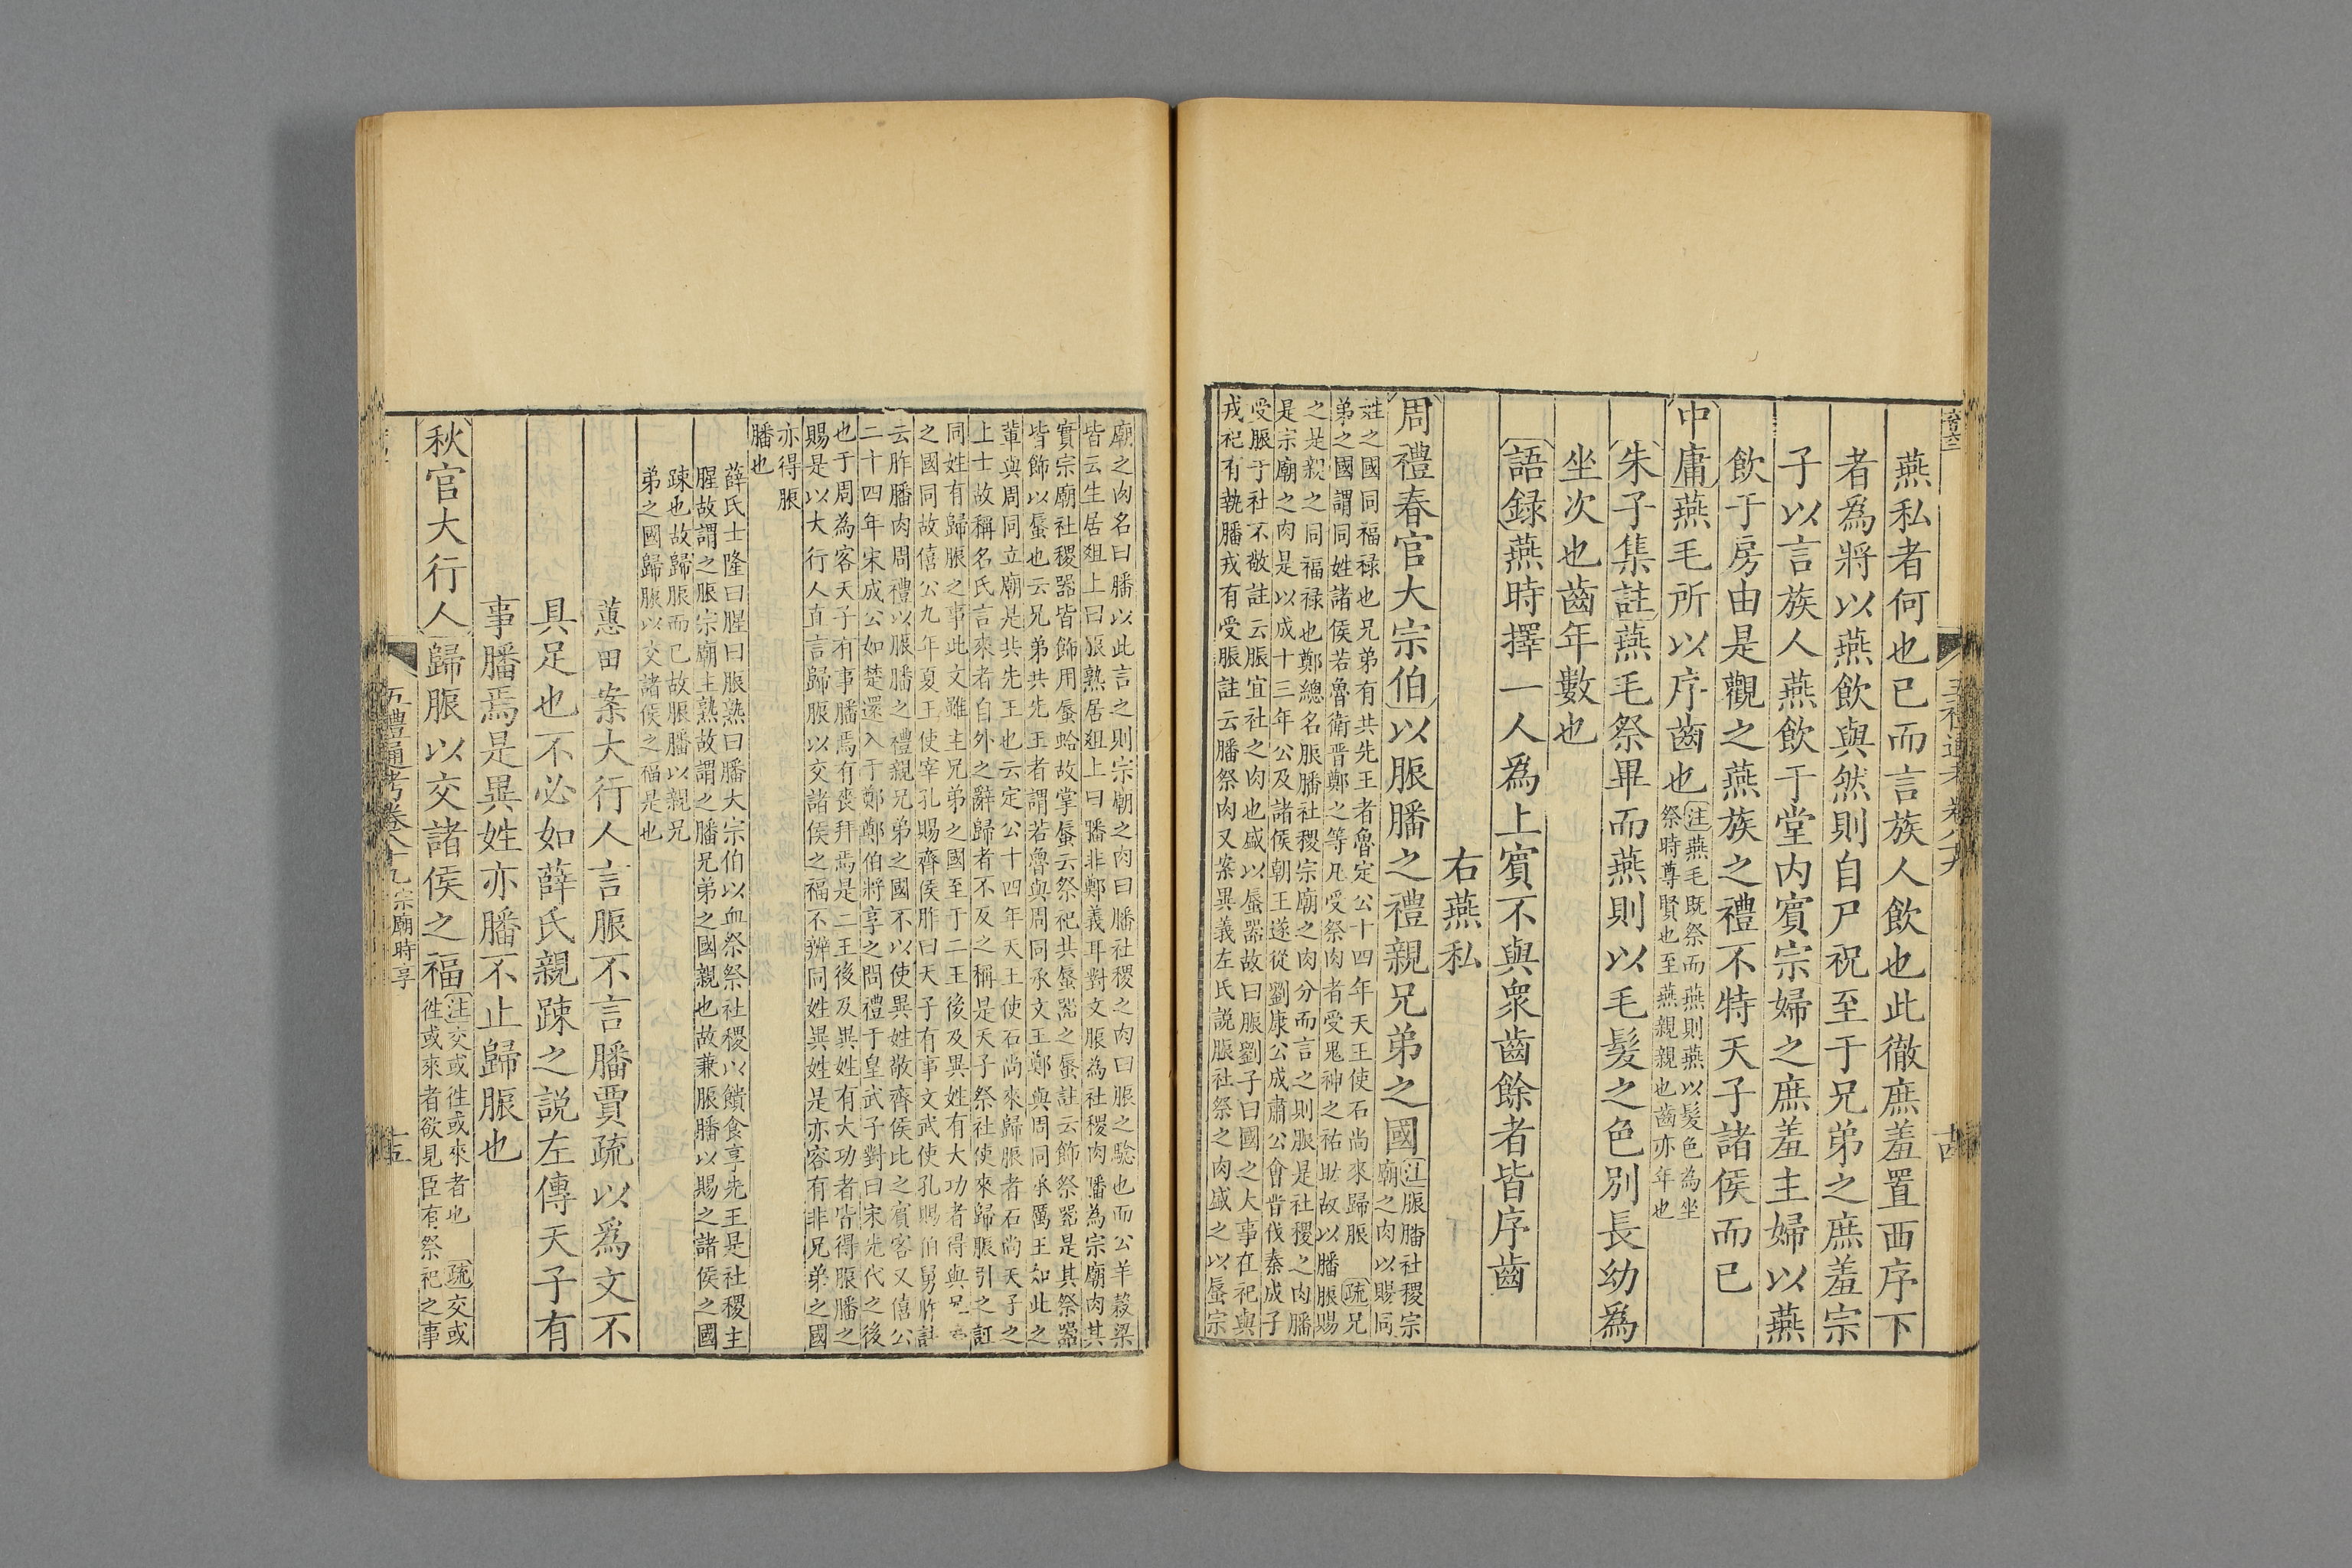 燕私者何也已而言族人飲也此徹庶羞置西序下
者爲將以燕飲與然則自尸祝至于兄弟之庶羞宗
子以言族人燕飲于堂內賓宗婦之庶羞主婦以燕
飲于房由是觀之燕族之禮不特天子諸侯而已
中庸燕毛所以序齒也注燕毛既祭而燕則燕以髮色為坐
祭時尊賢也至燕親親也齒亦年也
朱子集註燕毛祭畢而燕則以毛髮之色別長幼爲
坐次也齒年數也
語録燕時擇一人爲上賓不與衆齒餘者皆序齒
右燕私
周禮春官大宗伯以脤膰之禮親兄弟之國注脤膰社稷宗
廟之肉以賜同
姓之國同福禄也兄弟有共先王者魯定公十四年天王使石尚來歸脤　疏兄
弟之國謂同姓諸侯若魯衛晋鄭之等凡受祭肉者受鬼神之祐助故以膰脤賜
之是親之同福禄也鄭總名脤膰社稷宗廟之肉分而言之則脤是社稷之肉膰
是宗廟之肉是以成十三年公及諸侯朝王遂從劉康公成肅公會晋伐秦成子
受脤于社不敬註云脤宜社之肉也盛以蜃器故曰脤劉子曰國之大事在祀與
戎祀有執膰戎有受脤註云膰祭肉又案異義左氏說脤社祭之肉盛之以蜃宗
廟之肉名曰膰以此言之則宗廟之肉曰膰社稷之肉曰脤之驗也而公羊穀梁
皆云生居俎上曰脤熟居俎上曰膰非鄭義耳對文脤為社稷肉膰為宗廟肉其
實宗廟社稷器皆飾用蜃蛤故掌蜃云祭祀共蜃器之蜃註云飾祭器是其祭器
皆飾以蜃也云兄弟共先王者謂若魯與周同承文王鄭與周同承厲王如此之
輩與周同立廟是共先王也云定公十四年天王使石尚來歸脤者石尚天子之
上士故稱名氏言來者自外之辭歸者不反之稱是天子祭社使來歸脤引之証
同姓有歸脤之事此文雖主兄弟之國至于二王後及異姓有大功者得與兄
之國同故僖公九年夏王使宰孔賜齊侯胙曰天子有事文武使孔賜伯舅胙註
云胙膰肉周禮以脤膰之禮親兄弟之國不以使異姓敬齊侯比之賓客又僖公
二十四年宋成公如楚還入于鄭鄭伯將享之問禮于皇武子對曰宋先代之後
也于周為客天子有事膰焉有喪拜焉是二王後及異姓有大功者皆得脤膰之
賜是以大行人直言歸脤以交諸侯之福不辨同姓異姓是亦容有非兄弟之國
亦得脤
膰也
薛氏士隆曰腥曰脤熟曰膰大宗伯以血祭祭社稷以饋食享先王是社稷主
腥故謂之脤宗廟主熟故謂之膰兄弟之國親也故兼脤膰以賜之諸侯之國
踈也故歸脤而已故脤膰以親兄
弟之國歸脤以交諸侯之福是也
蕙田案大行人言脤不言膰賈疏以爲文不
具足也不必如薛氏親踈之説左傳天子有
事膰焉是異姓亦膰不止歸脤也
秋官大行人歸脤以交諸侯之福注交或往或來者也　疏交或
往或來者欲見臣有祭祀之事
五禮通考卷八十九宗廟時享